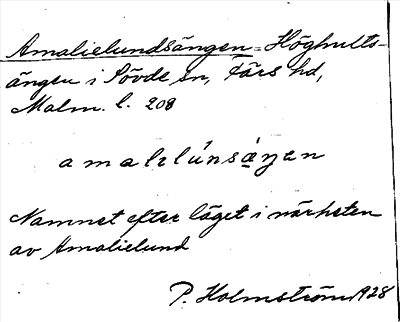 Amalielundsängen = Höghults-
ängen i Sövde sn, Färs hd,
Malm. l. 208
amalɩlúnsäŋen
Namnet efter läget i närheten
av Amalielund
P. Holmström 1928